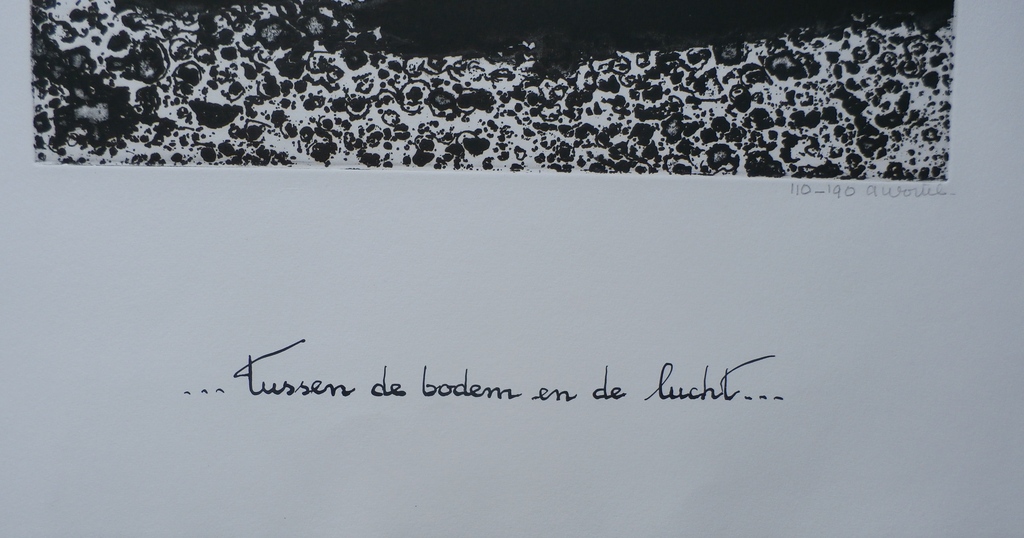 110-190
... tussen de bodem en de lucht...